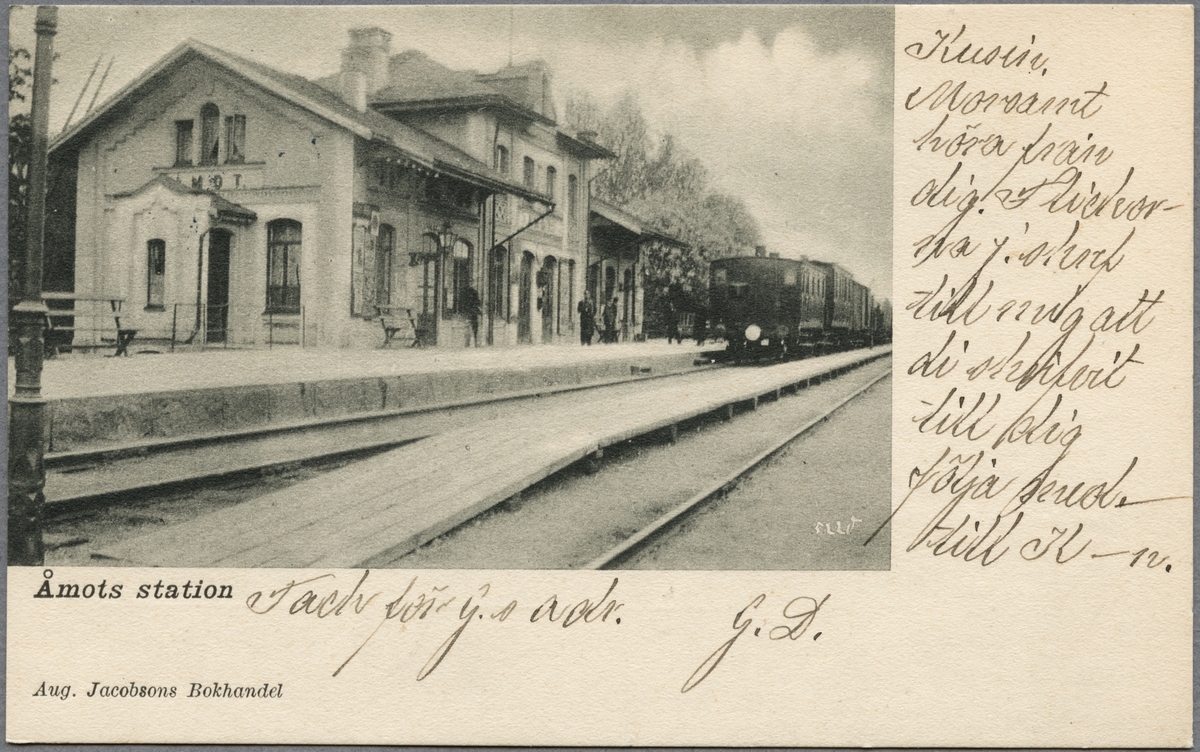 ÅMOT.
Kusin.
Morsamt
höra från
dig. Flickor-
na j. skref
till mig att
di skrifvit
till dig
följa med
till K – n.
Åmots station
Tack för ý.s adr. G. D.
Aug. Jacobsons Bokhandel